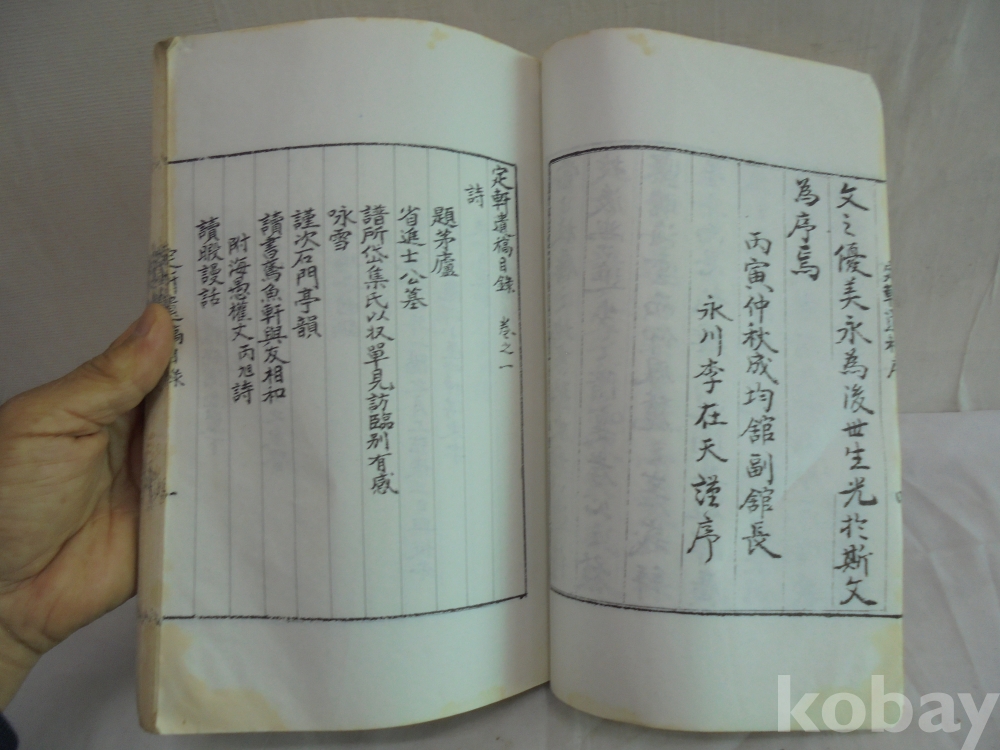 文之優美永為後世生光於斯文
為序焉
丙寅仲秋成均舘副舘長
永川李在天謹序
定軒遺稿目錄 卷之一
詩
題茅廬
省進士公墓
諳所岱集氏以权單見訪臨別有感
咏雪
謹次石門亭韻
讀書鳶魚軒與友相和
附海愚權丈丙旭詩
讀暇謾話
定軒遺稿目錄
kobay